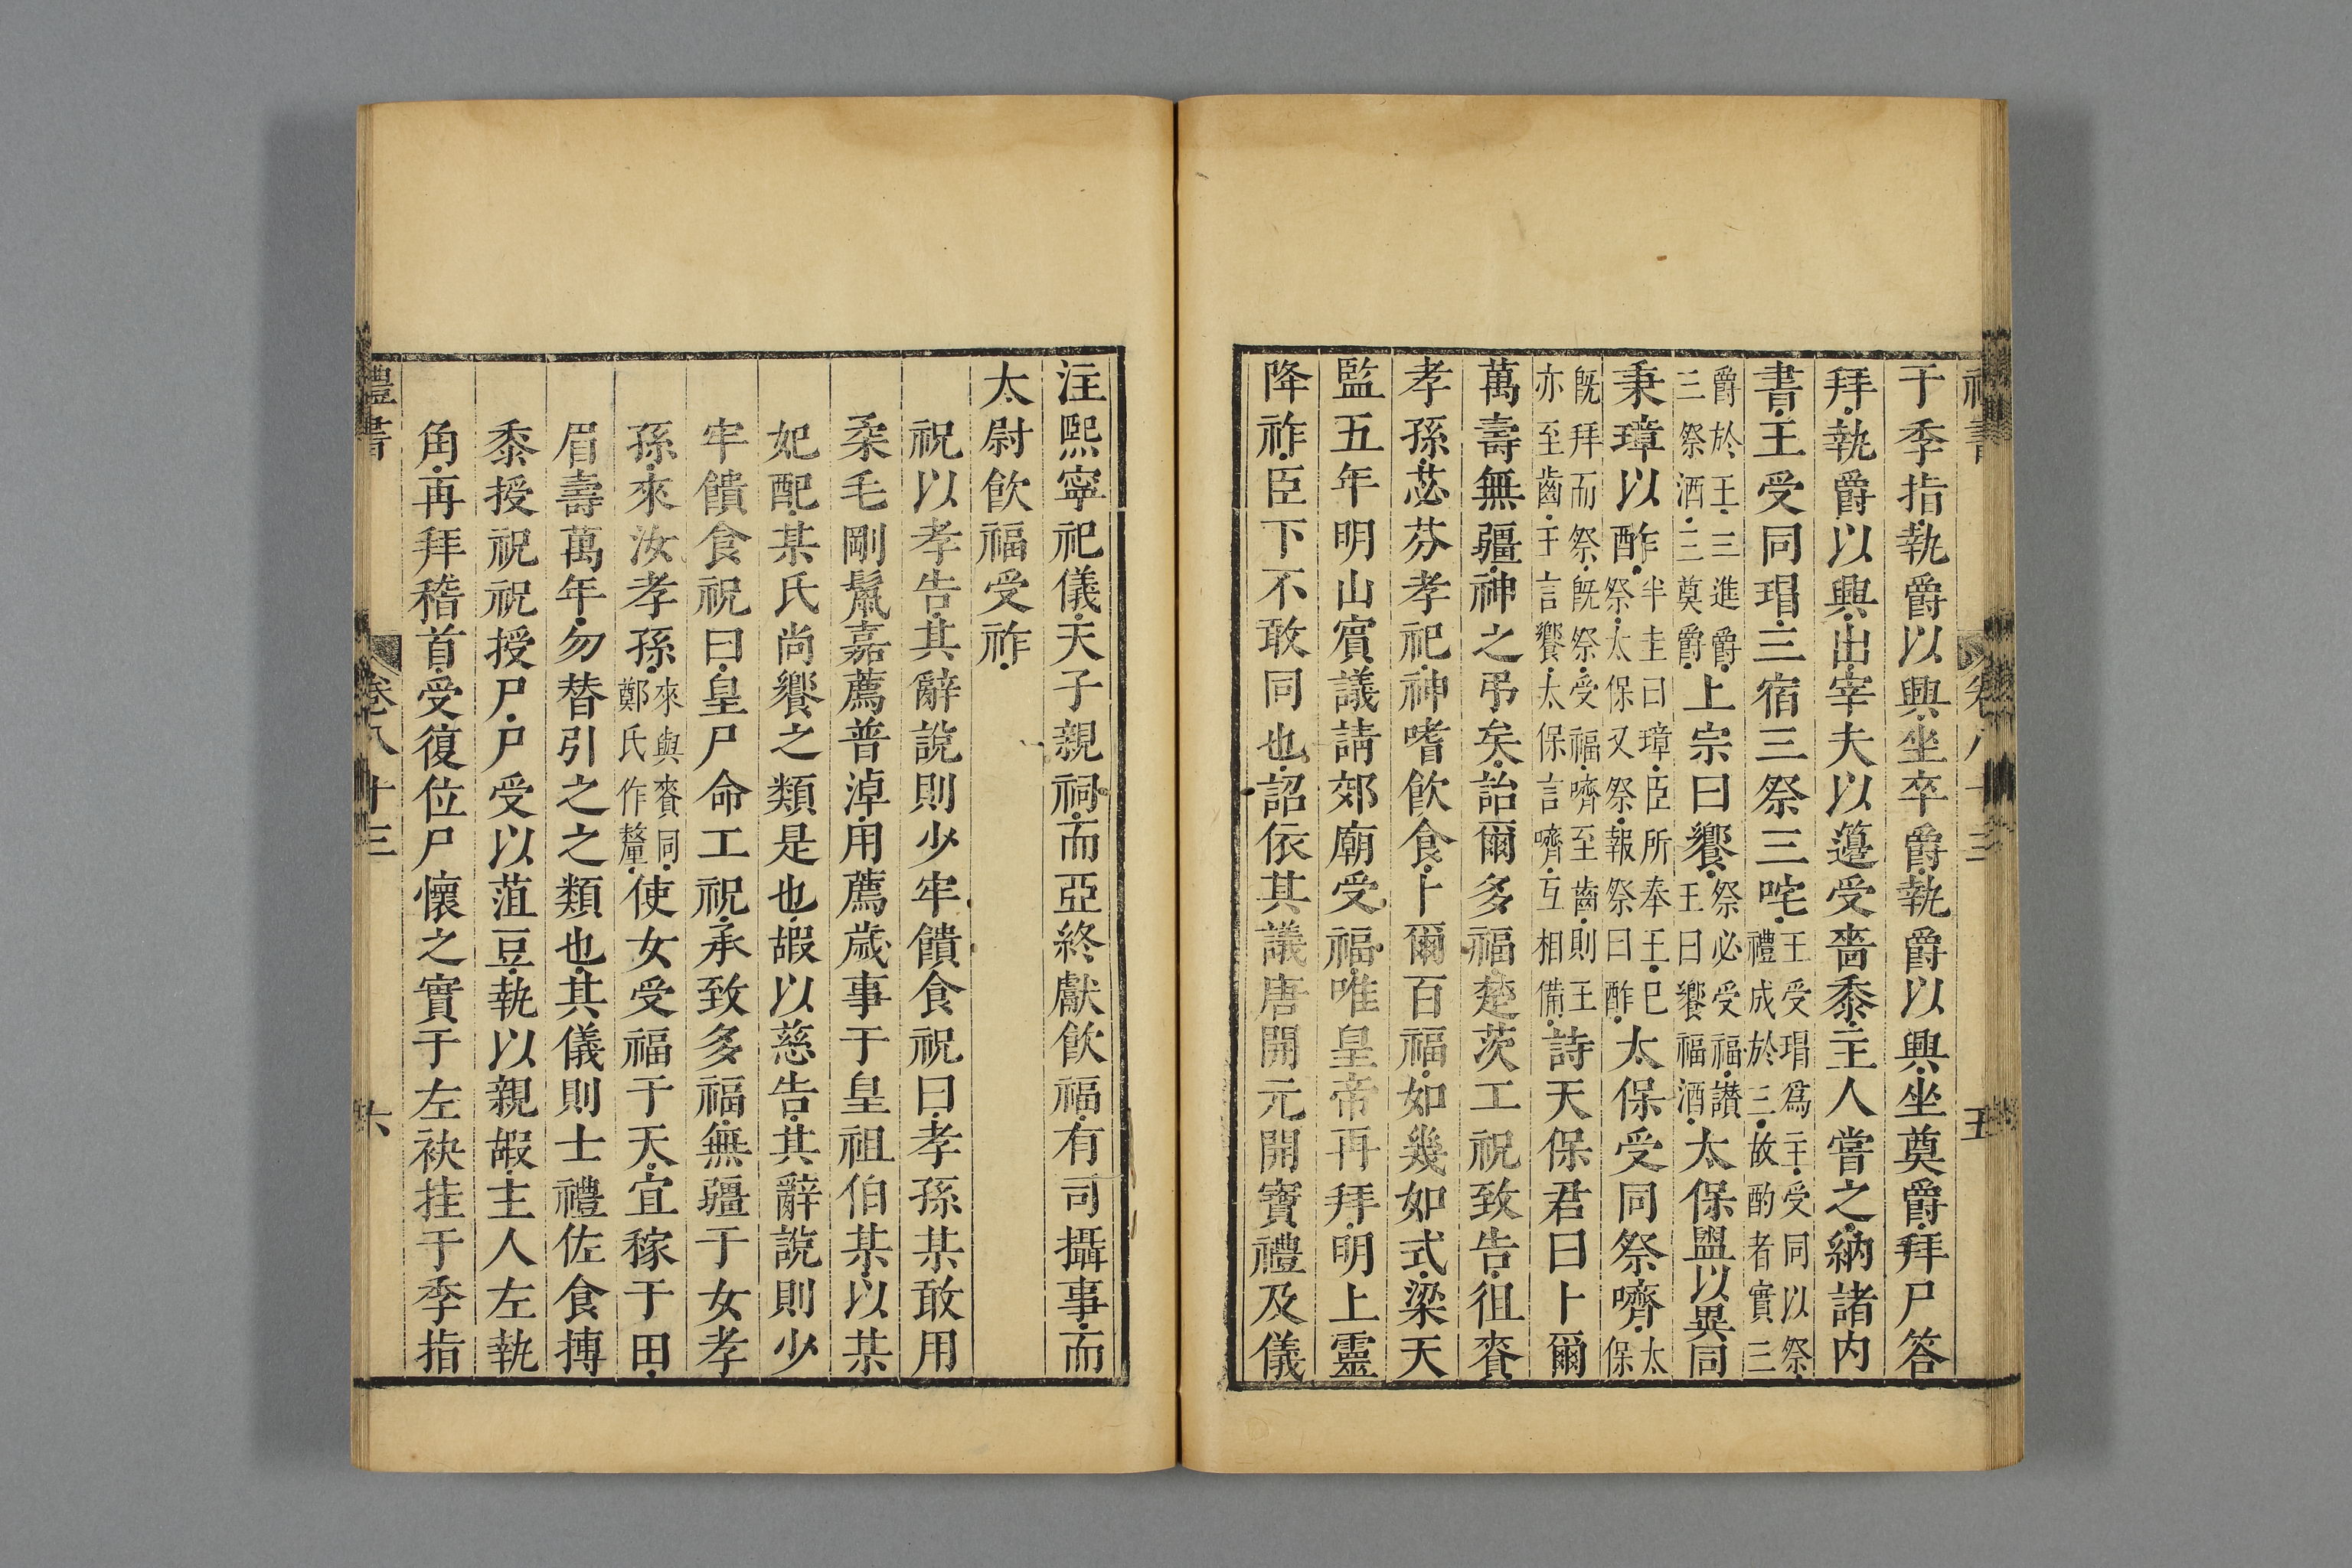 禮書 卷八十三 五
于季指執爵以興坐卒爵執爵以興坐奠爵拜尸答
拜執爵以興出宰夫以籩受嗇黍主人嘗之納諸内
書王受同瑁三宿三祭三咤王受瑁爲主受同以祭禮成於三故酌者實三
爵於王三進爵三祭酒三奠爵上宗曰饗祭必受福讃王曰饗福酒太保盥以異同
秉璋以酢半圭曰璋臣所奉王已祭太保又祭報祭曰酢太保受同祭嚌太保
旣拜而祭旣祭受福嚌至齒則王亦至齒于言饗太保言嚌互相備詩天保君曰卜爾
萬壽無疆神之弔矣詒爾多福楚茨工祝致告徂賚
孝孫苾芬孝祀神嗜飲食卜爾百福如幾如式梁天
監五年明山賓議請郊廟受福唯皇帝再拜明上靈
降祚臣下不敢同也詔依其議唐開元開寶禮及儀
注熙寧祀儀天子親祠而亞終獻飲福有司攝事而
太尉飲福受祚
祝以孝告其辭說則少牢饋食祝曰孝孫某敢用
柔毛剛鬛嘉薦普淖用薦歲事于皇祖伯某以某
妃配某氏尚饗之類是也嘏以慈告其辭說則少
牢饋食祝曰皇尸命工祝承致多福無疆于女孝
孫來汝孝孫來與賚同鄭氏作釐使女受福于天宜稼于田
眉壽萬年勿替引之之類也其儀則士禮佐食摶
黍授祝祝授尸尸受以菹豆執以親嘏主人左執
角再拜稽首受復位尸懷之實于左袂挂于季指
禮書 卷八十三 六